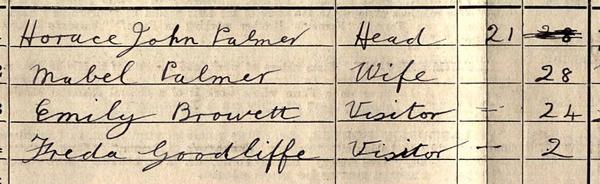 Horace John Palmer Head 21 28
Mabel Palmer Wife 28
Emily Browett Visitor — 24
Freda Goodliffe Visitor — 2